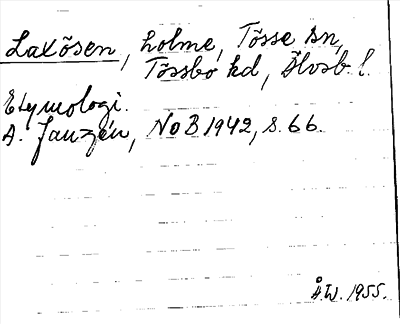 Laxösen, holme, Tösse sn,
Tössbo hd, Älvsb. l.
Etymologi.
A. Janzén, NoB 1942, s. 66.
Å.W. 1955.